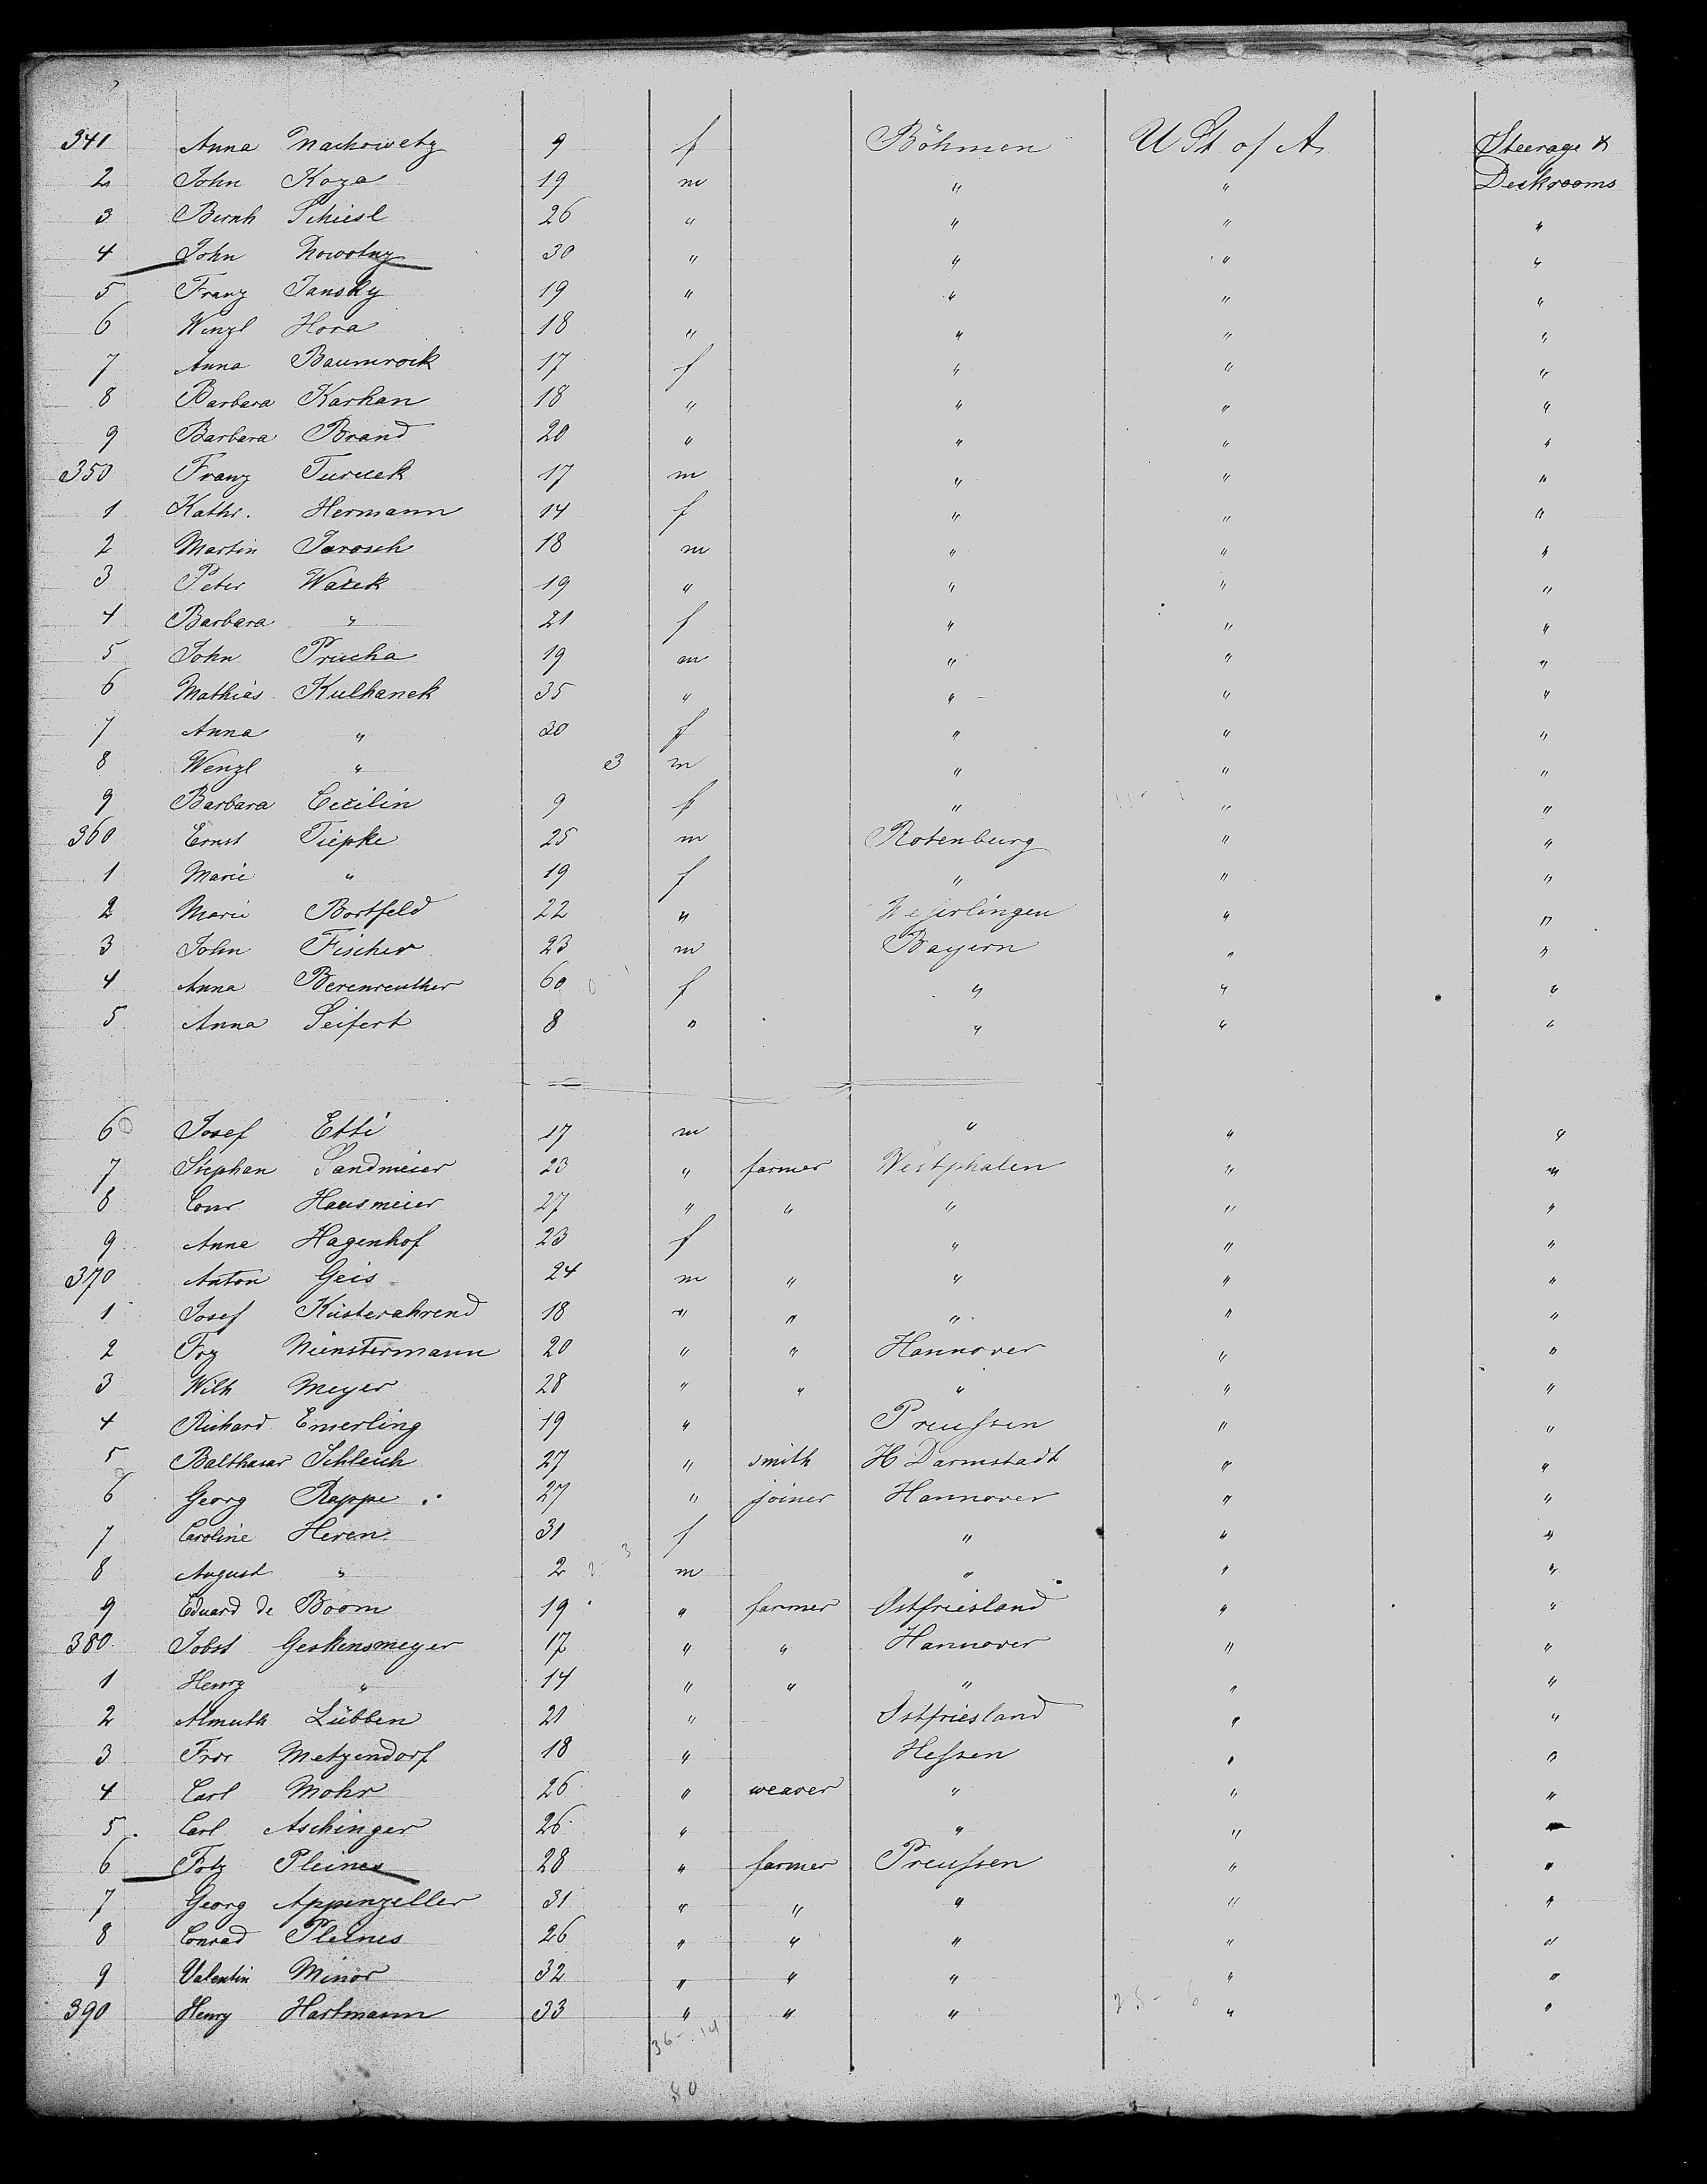 341 Anna Nachowetz 9 f Böhmen U St of A Steerage &
2 John Koza 19 m " " Deckrooms
3 Bernh Schiesl 26 " " " "
4 John Nowotny 30 " " " "
5 Franz Jansky 19 " " " "
6 Wenzl Hora 18 " " " "
7 Anna Baumrock 17 f " " "
8 Barbara Karhan 18 " " " "
9 Barbara Brand 20 " " " "
350 Franz Turecek 17 m " " "
1 Kathr. Hermann 14 f " " "
2 Martin Jarosch 18 m " " "
3 Peter Wazek 19 " " " "
4 Barbara " 21 f " " "
5 John Prucha 19 m " " "
6 Mathias Kulhanek 35 " " " "
7 Anna " 30 f " " "
8 Wenzl " 3 m " " "
9 Barbara Cecilin 9 f " " "
360 Ernst Tiepke 25 m Rotenburg " "
1 Marie " 19 f " " "
2 Marie Bortfeld 22 " Weferlingen " "
3 John Fischer 23 m Bayern " "
4 Anna Berenreuther 60 f " " "
5 Anna Seifert 8 " " " "
6 Josef Etti 17 m " " "
7 Stephan Sandmeier 23 " farmer Westphalen " "
8 Conr Hausmeier 27 " " " " "
9 Anna Hagenhof 23 f " " "
370 Anton Geis 24 m " " " "
1 Josef Küsterahrend 18 " " " " "
2 Frz Münstermann 20 " " Hannover " "
3 Wilh Meyer 28 " " " " "
4 Richard Emerling 19 " Preussen " "
5 Balthasar Schleich 27 " smith H Darmstadt " "
6 Georg Rappe 27 " joiner Hannover " "
7 Caroline Heren 31 f " " "
8 August " 2 m " " "
9 Eduard de Boom 19 " farmer Ostfriesland " "
380 Jobst Gerkensmeyer 17 " " Hannover " "
1 Henry " 14 " " " " "
2 Almuth Lübben 21 " Ostfriesland " "
3 Metzendorf 18 " Hessen " "
4 Carl Mohr 26 " weaver " " "
5 Carl Aschinger 26 " " " "
6 Pleines 28 " farmer Preussen " "
7 Georg Appenzeller 31 " " " " "
8 Conrad Pleines 26 " " " " "
9 Valentin Minor 32 " " " " "
390 Henry Hartmann 33 " " " " "
36-14
80